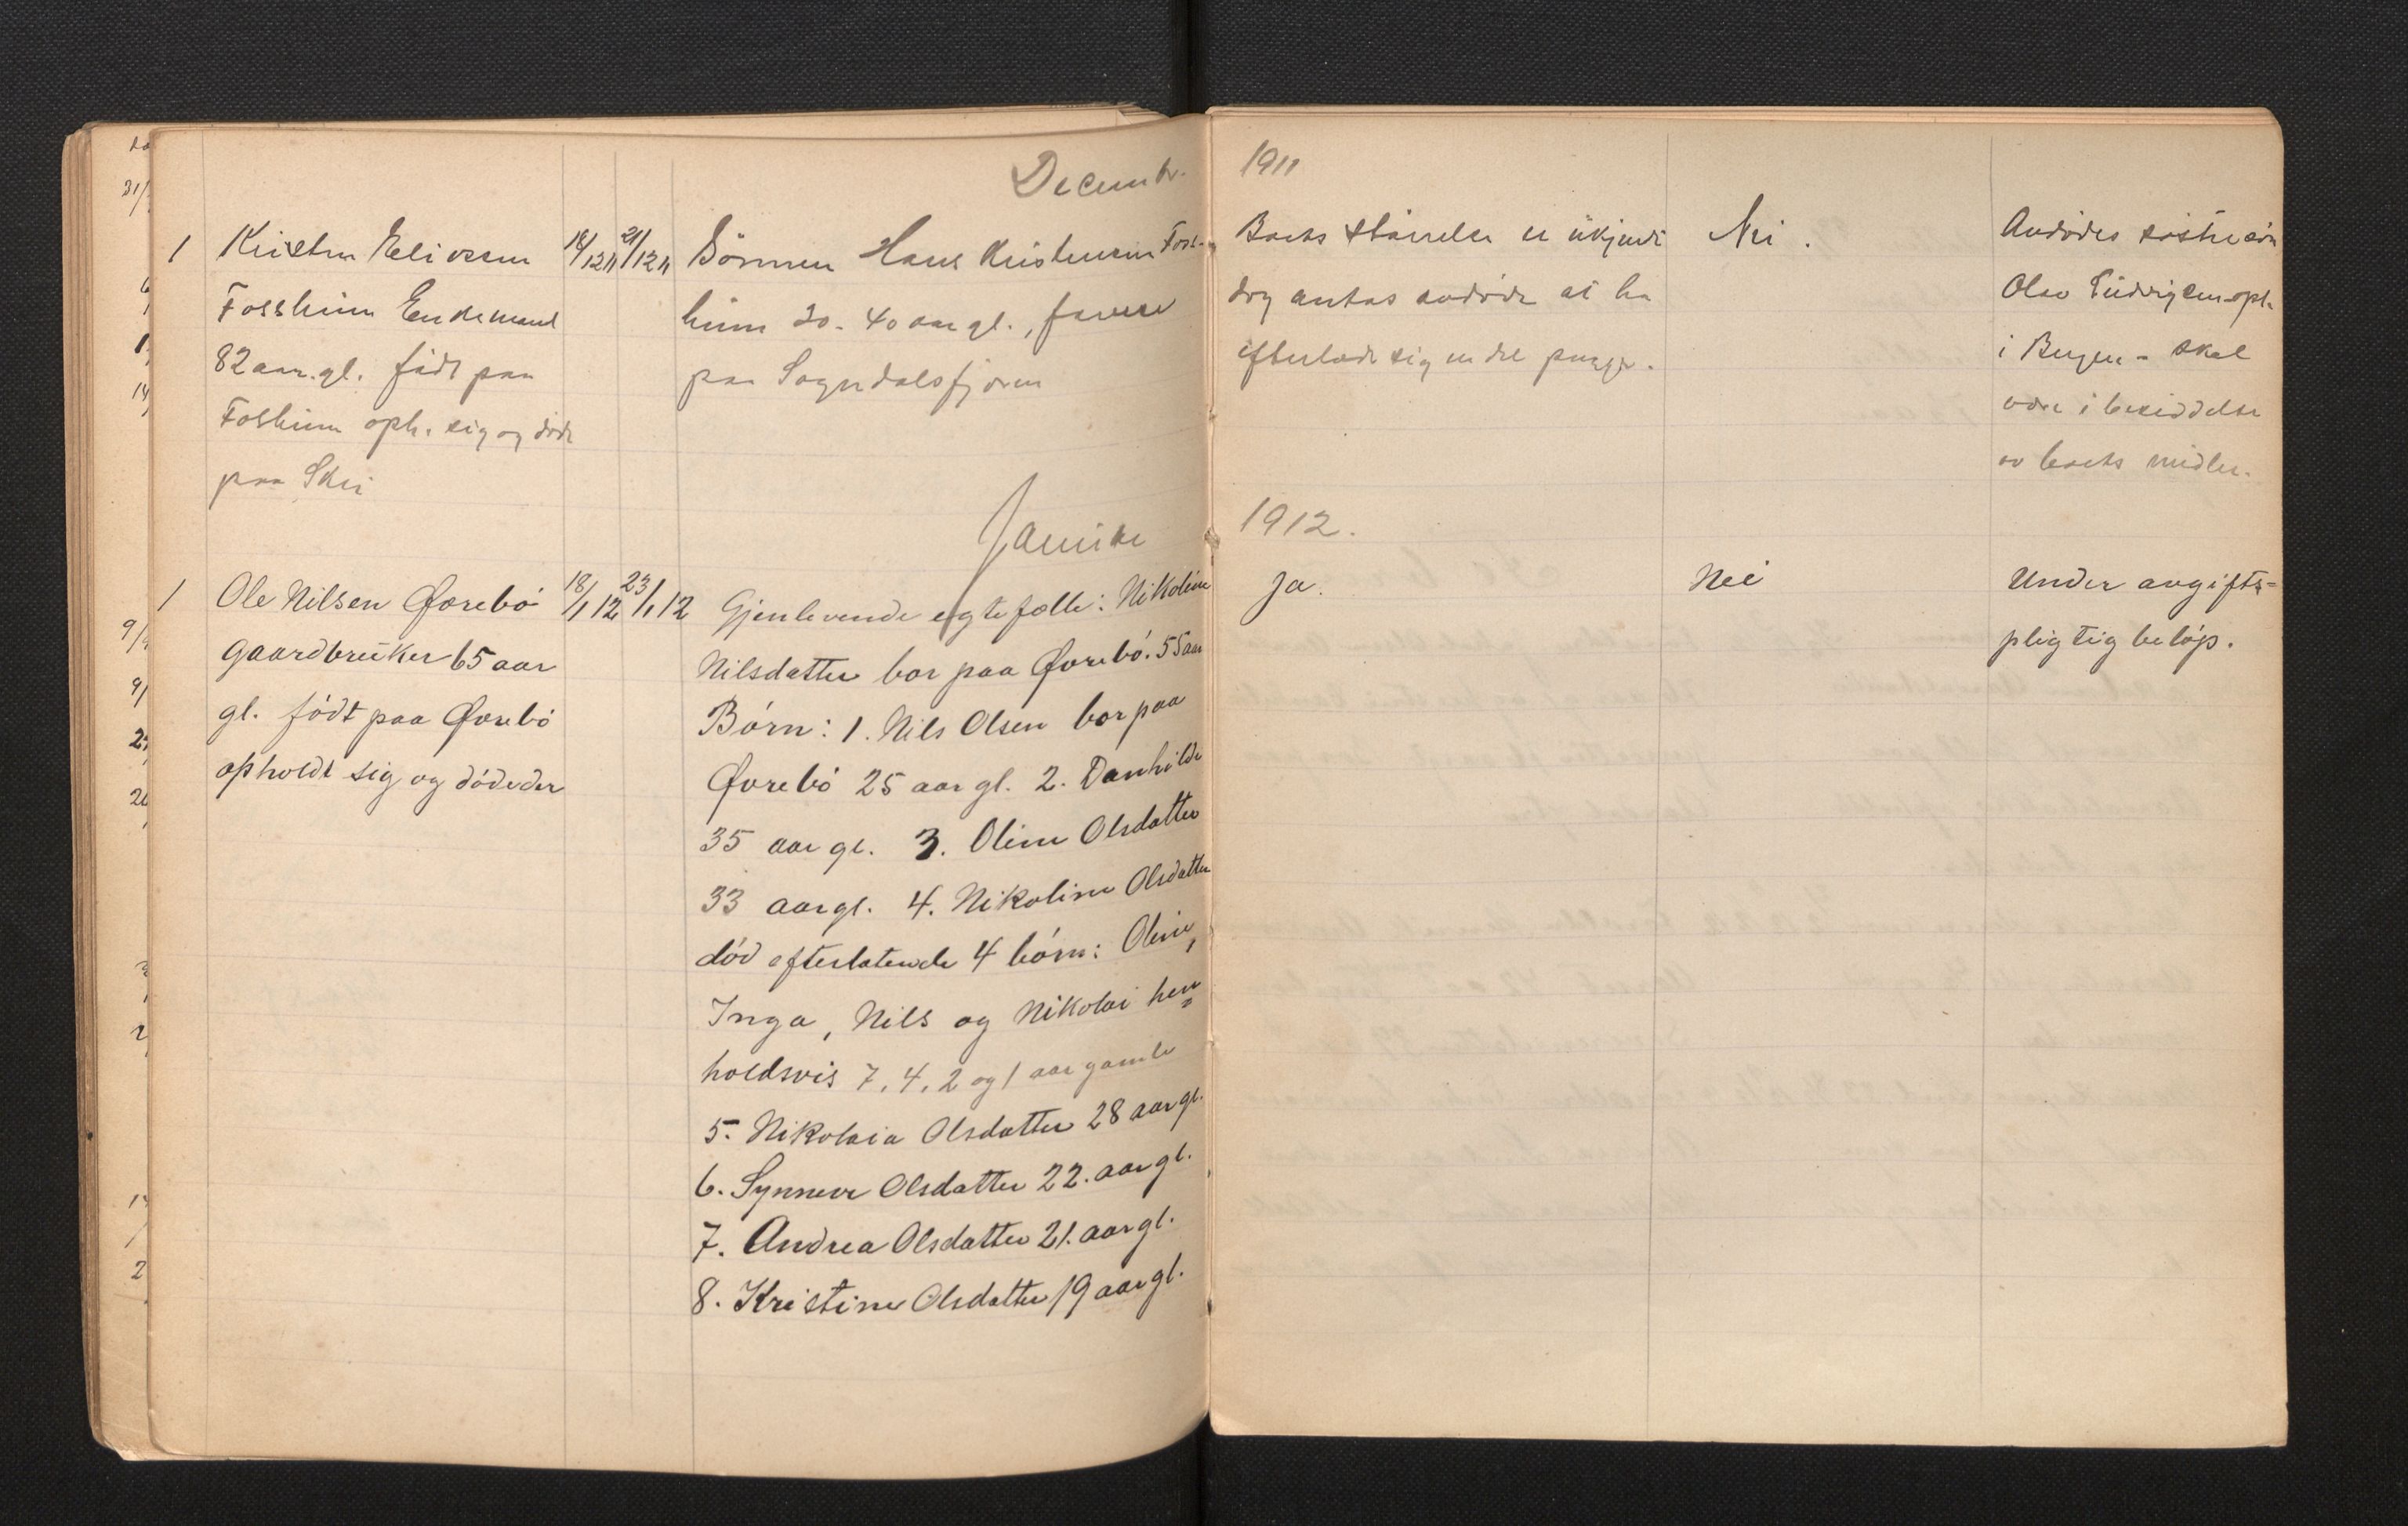 Decembr. 1911
1 Kristen Eliassen 18/12 11 21/12 11
Fossheim Enkemand
82 aar. gl. född paa
Fosheim oph. sig og döde
paa Skei
Sönnen Hans Kristensen Foss-
heim 30-40 aar gl.,
paa Sogndalsfjøren
Boets störrelse er ukjendt
dog antas avdöde at ha
efterladt sig en del penger.
Nei.
Avdödes söstersön
Olav oph.
i Bergen - skal
være i besiddelse
av boets midler.
Januar 1912.
1 Ole Nilsen Øvrebö 18/1 12 23/1 12
Gaardbruker 65 aar
gl. födt paa Øvrebö
opholdt sig og döde der
Gjenlevende egtefælle: Nikoline
Nilsdatter bor paa Øvrebö. 55 aar
Börn: 1. Nils Olsen bor paa
Øvrebö 25 aar gl. 2. Danhilde
35 aar gl. 3. Oline Olsdatter
33 aar gl. 4. Nikoline Olsdatter
död efterlatende 4 börn: Oline,
Inga, Nils og Nikolai hen=
holdsvis 7, 4, 2 og 1 aar gamle
5. Nikolaia Olsdatter 28 aar gl.
6. Synneve Olsdatter 22. aar gl.
7. Andrea Olsdatter 21. aar gl.
8. Kristine Olsdatter 19 aar gl.
Ja.
Nei
Under avgifts=
pligtig belöp.